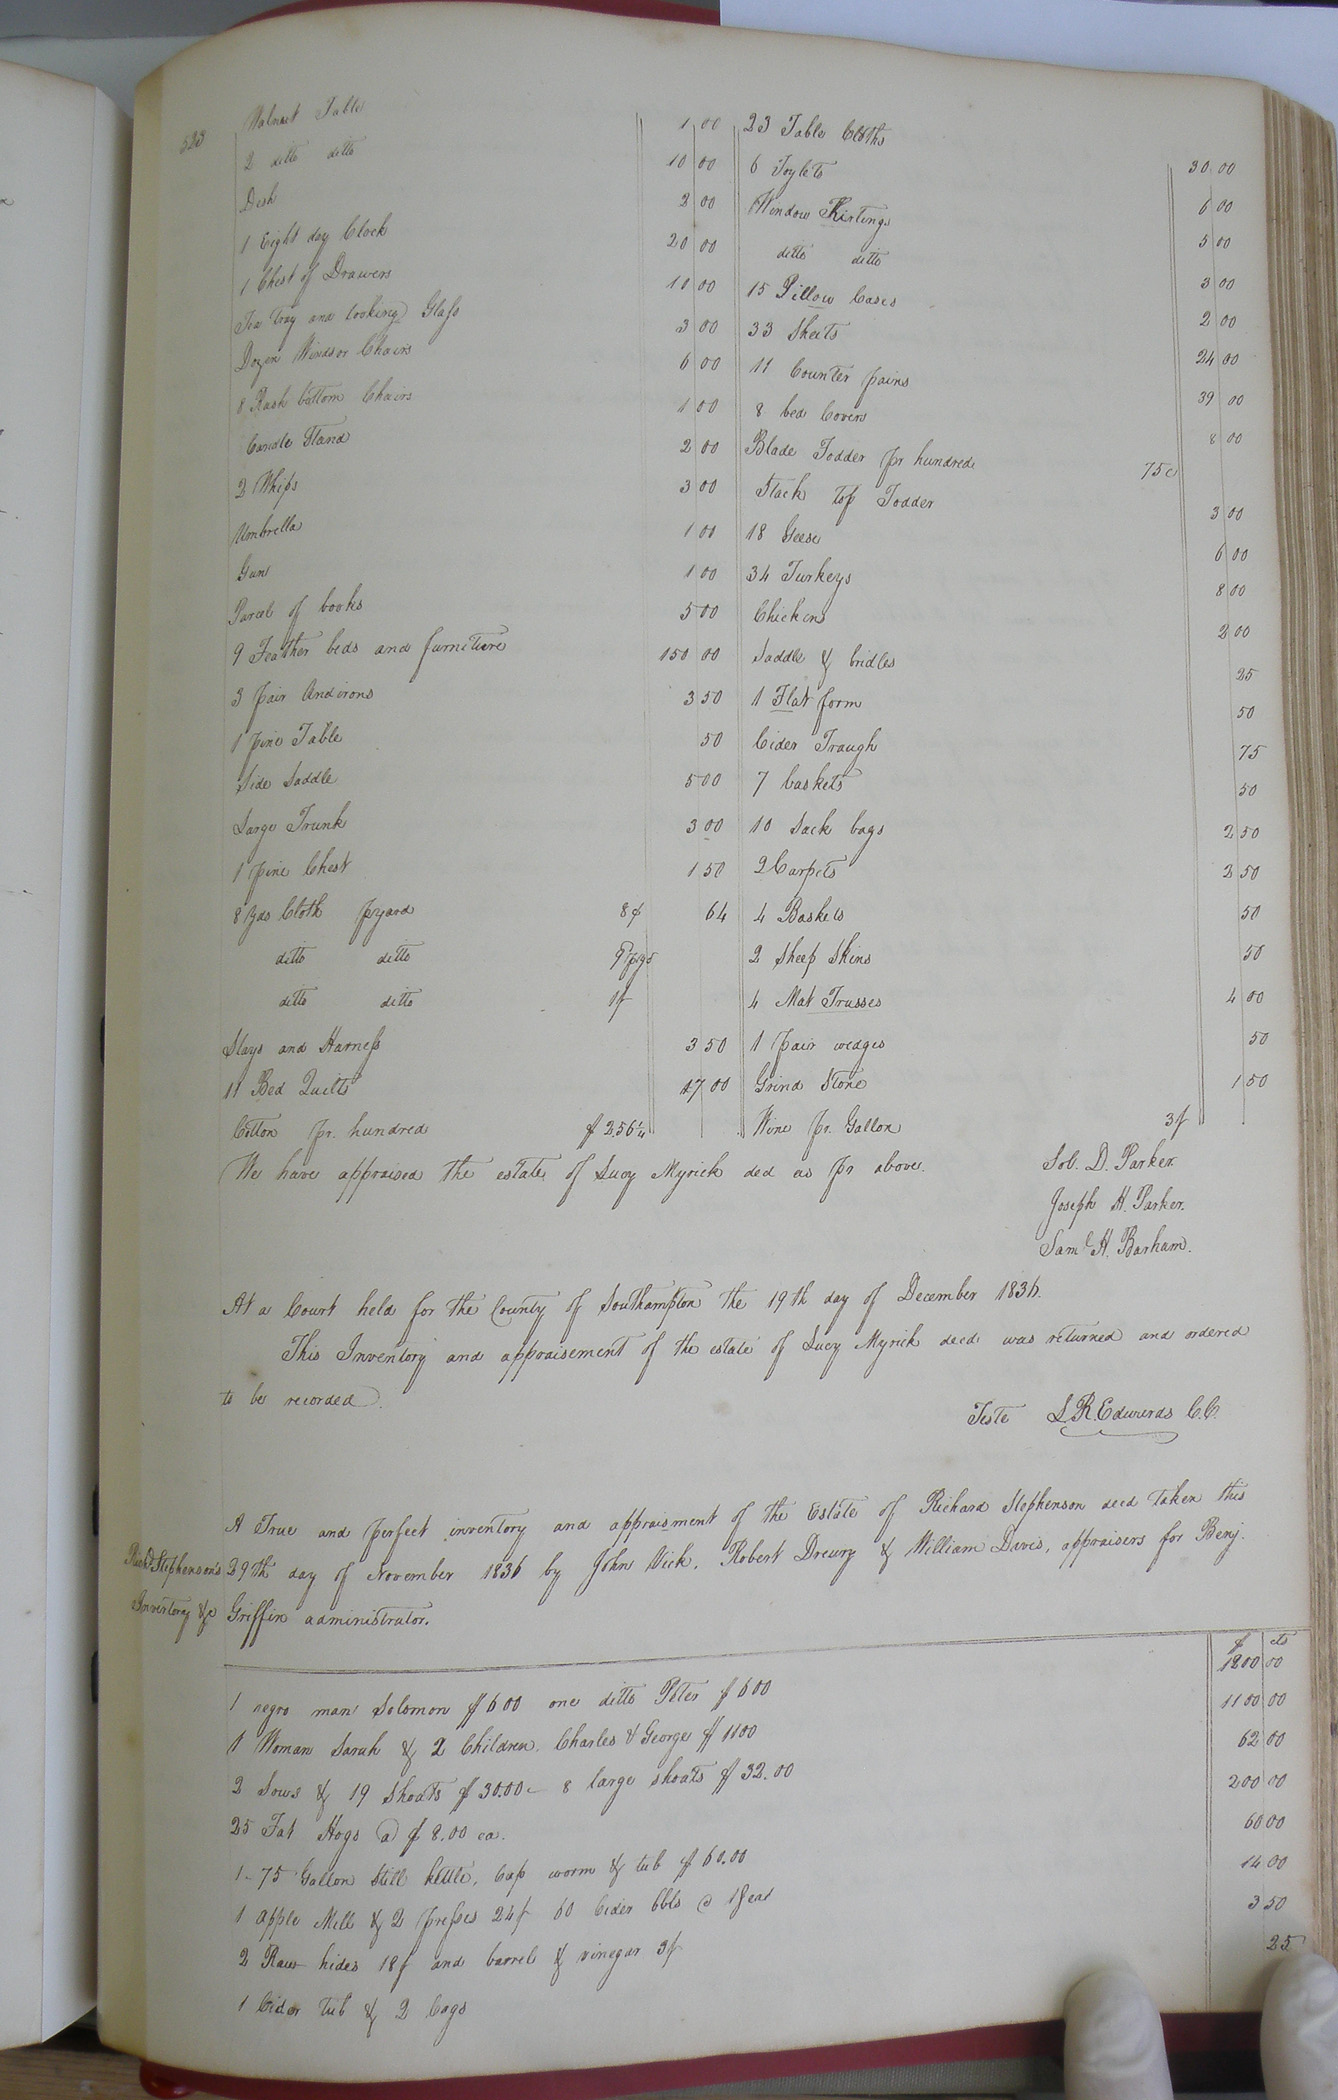 523
Walnut Table 1 00
2 ditto ditto 10 00
Desk 2 00
1 Eight day Clock 20 00
1 Chest of Drawers 10 00
Tea Tray and looking Glass 3 00
Dozen Windsor Chairs 6 00
8 Rush bottom Chairs 1 00
Candle Stand 2 00
2 Whips 3 00
Umbrella 1 00
Gun 1 00
Parcel of books 5 00
9 Feather beds and furniture 150 00
3 pair Andirons 3 50
1 pine Table 50
Side Saddle 5 00
Large Trunk 3 00
1 pine Chest 1 50
8 Yds Cloth pr yard 8¢ 64
ditto ditto
ditto ditto 1/
Slays and Harness 3 50
11 Bed Quilts 17 00
Cotton pr. hundred $2.56¼
23 Table Cloths 30 00
6 Toylets 6 00
Window Kirtings 5 00
ditto ditto 3 00
15 Pillow Cases 2 00
33 Sheets 24 00
11 Counter pains 39 00
8 bed Covers 8 00
Blade Fodder pr hundred 75c
Stack top Fodder 3 00
18 Geese 6 00
34 Turkeys 8 00
Chickens 2 00
Saddle & bridles 25
1 Flat form 50
Cider Traugh 75
7 baskets 50
10 Sack bags 2 50
2 Carpets 2 50
4 Baskets 50
2 Sheep Skins 50
4 Mat Trusses 4 00
1 pair wedges 50
Grind Stone 1 50
Wine pr. Gallon 3/
We have appraised the estate of Lucy Myrick decd as pr above.
Sol. D. Parker.
Joseph H. Parker.
Saml H. Barham.
At a Court held for the County of Southampton the 19th day of December 1836.
This Inventory and appraisement of the estate of Lucy Myrick decd was returned and ordered
to be recorded.
Teste L. R. Edwards C.C.
Richd Stephenson's
Inventory &c
A True and perfect inventory and appraisment of the Estate of Richard Stephenson decd taken this
29th day of November 1836 by John Vick, Robert Drewry & William Davis, appraisers for Benj.
Griffin administrator.
$ cts
1 negro man Solomon $600 one ditto Peter $600 1200 00
1 Woman Sarah & 2 Children, Charles & George $1100 1100 00
2 Sows & 19 Shoats $30.00 - 8 large shoats $32.00 62 00
25 Fat Hogs @ $8.00 ea. 200 00
1 - 75 Gallon Still kettle, Cap worm & tub $60.00 60 00
1 apple Mill & 2 presses 24/ 60 Cider bbls @ 1/ ea 14 00
2 Raw hides 18/ and barrel & vinegar 3/ 3 50
1 Cider tub & 2 Cags 25